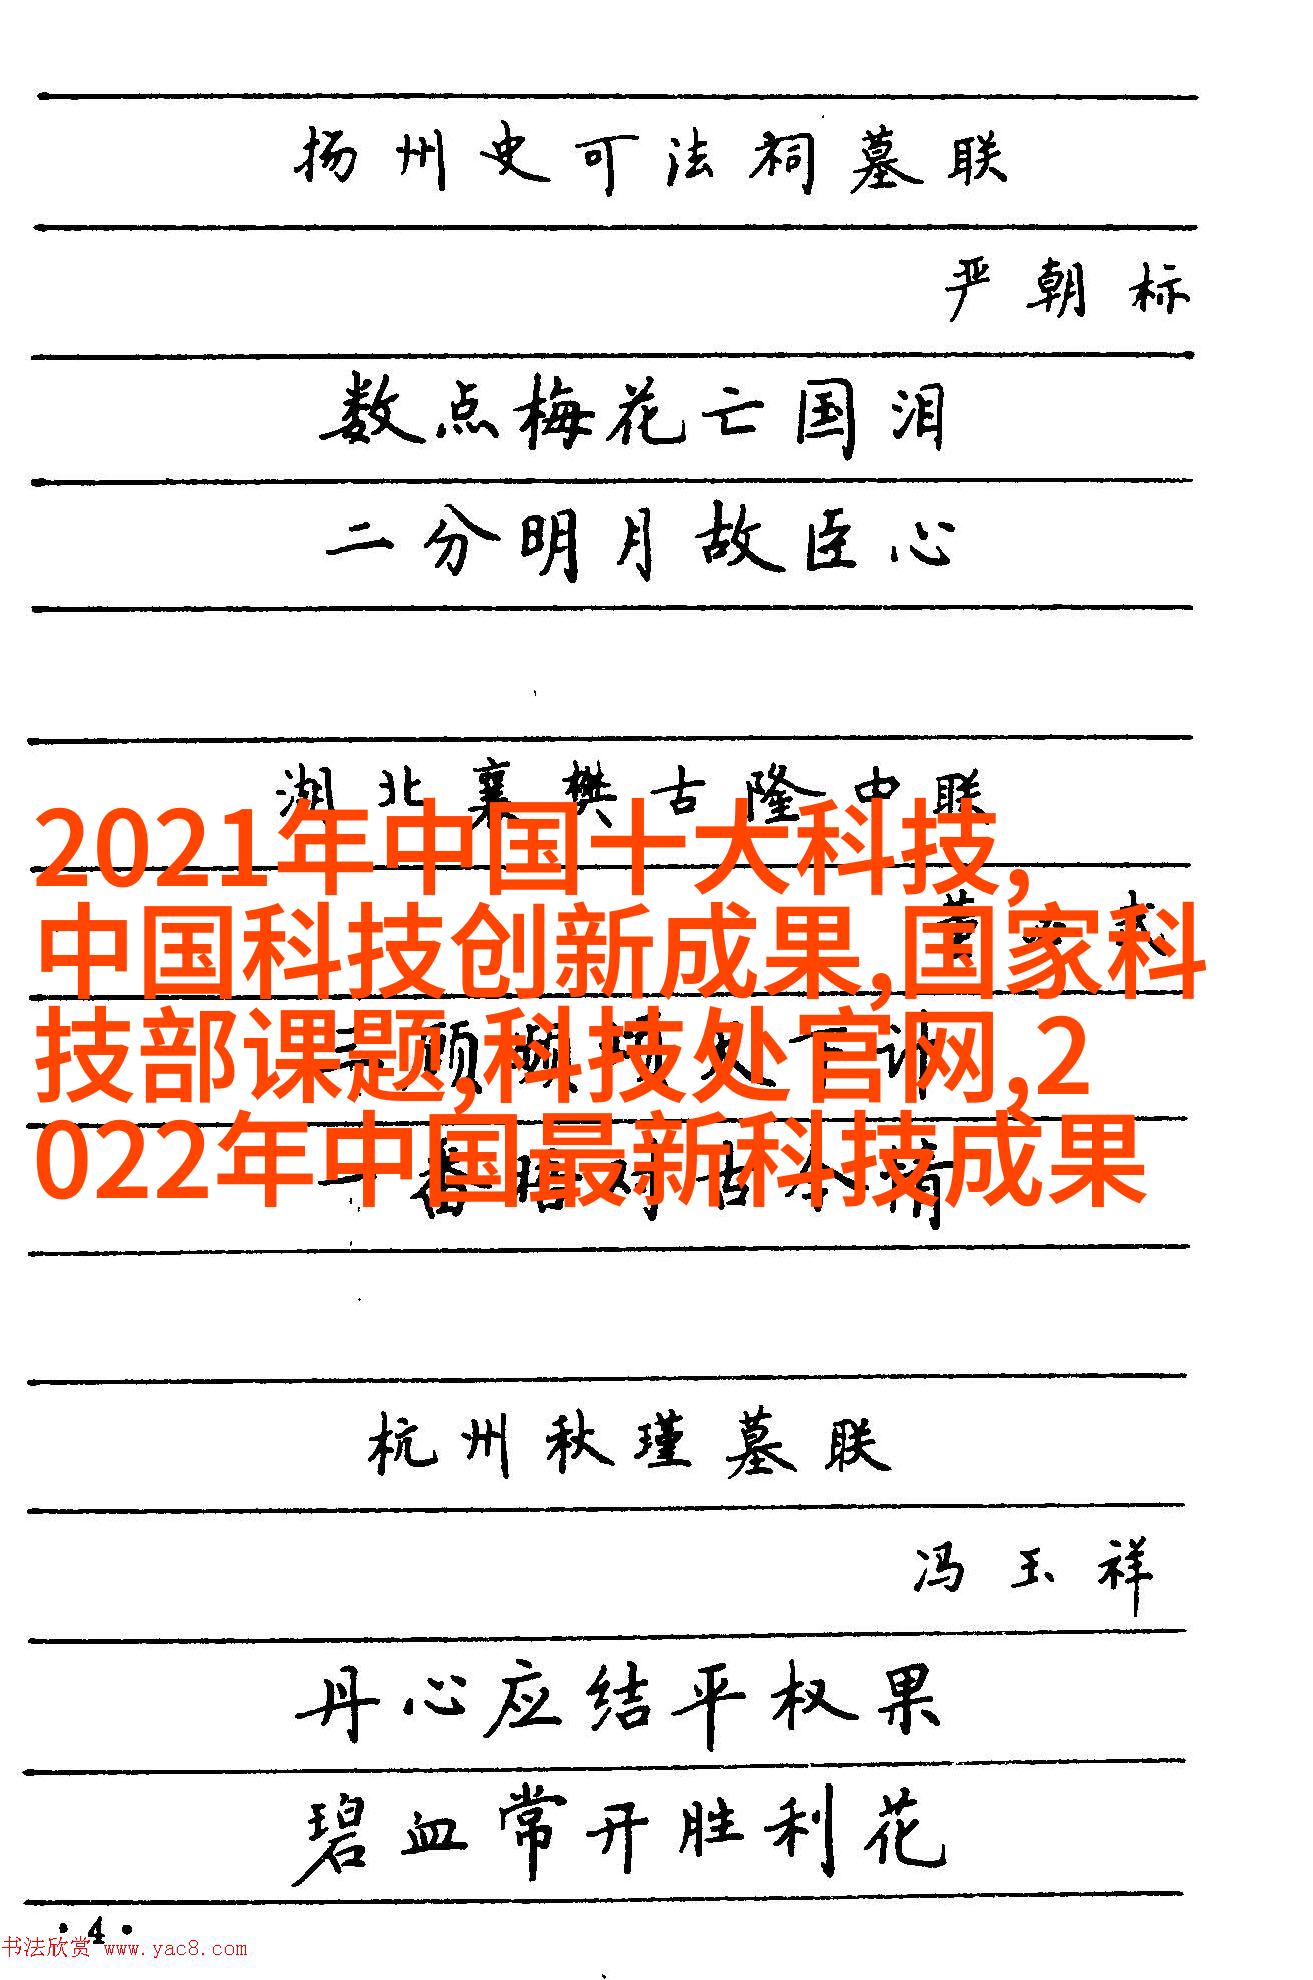 扬州史可法祠墓联
严朝标
数点梅花亡国泪
二分明月故臣心
湖北襄樊古隆中联
董必武
2021年中国十大科技,
中国科技创新成果,国家科
技部课题,科技处官网,2
022年中国最新科技成果
三顾频烦天下计
一番晤对古今情
杭州秋瑾墓联
冯玉祥
丹心应结平权果
碧血常开胜利花
·4·
书法欣赏 www.yac8.com